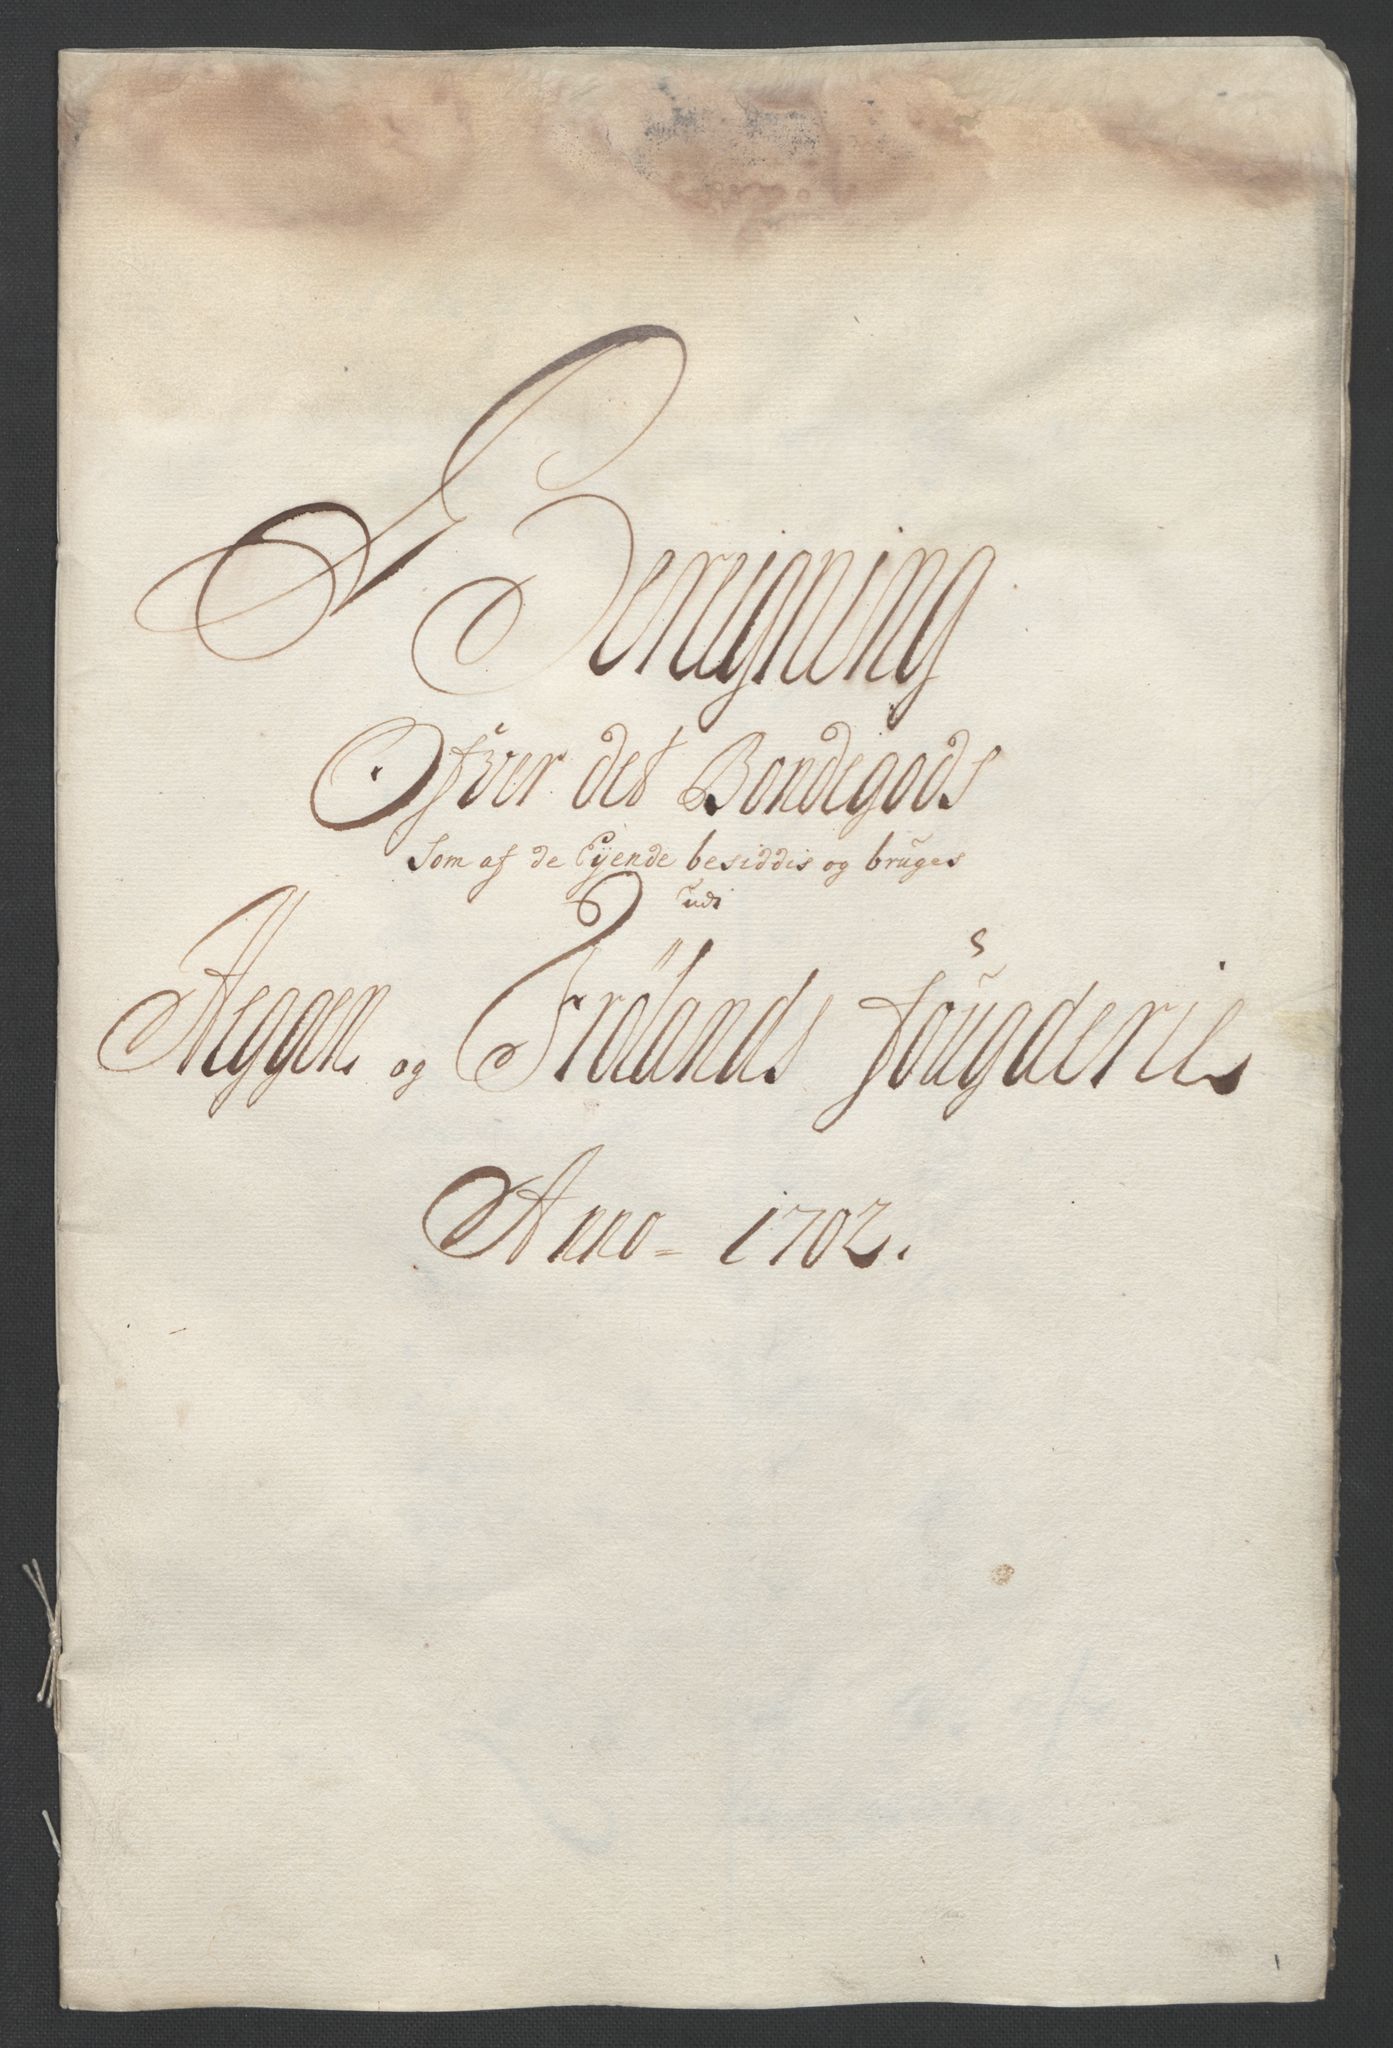 Beregning
Ofver det Bondegods
Som af de Eyende besiddis og bruges
udi
Heggen og Frölands fougderie
Anno - 1702.